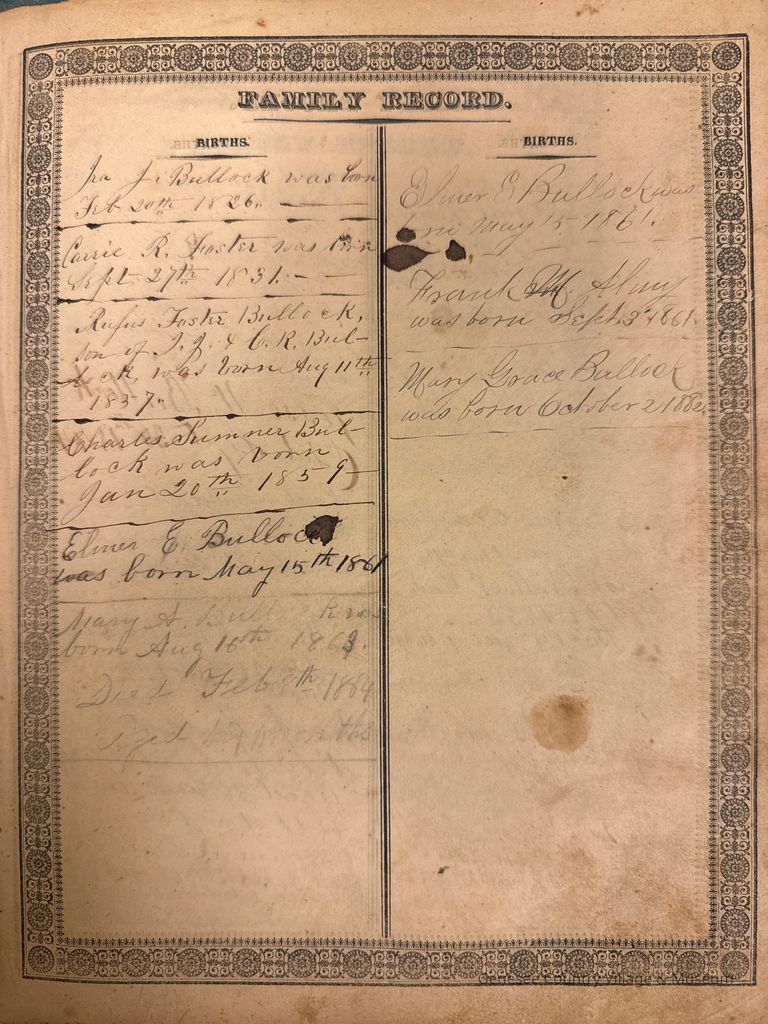 FAMILY RECORD.
BIRTHS.
Ira J. Bullock was born
Feb 20th 1826.
Carrie R. Foster was born
Sept. 27th 1831.
Rufus Foster Bullock,
son of I. J. & C. R. Bul-
lock, was born Aug 11th
1857.
Charles Sumner Bul-
lock was born
Jan 20th 1859
Elmer E. Bullock
was born May 15th 1861
Mary A. Bullock was
born Aug 16th 1863.
Died Feb 8th 1864
Aged six months
BIRTHS.
Elmer E Bullock was
born May 15 1861.
Frank M. Almy
was born Sept. 3d 1861.
Mary Grace Bullock
was born October 2 1882.
Genesee Country Village & Museum